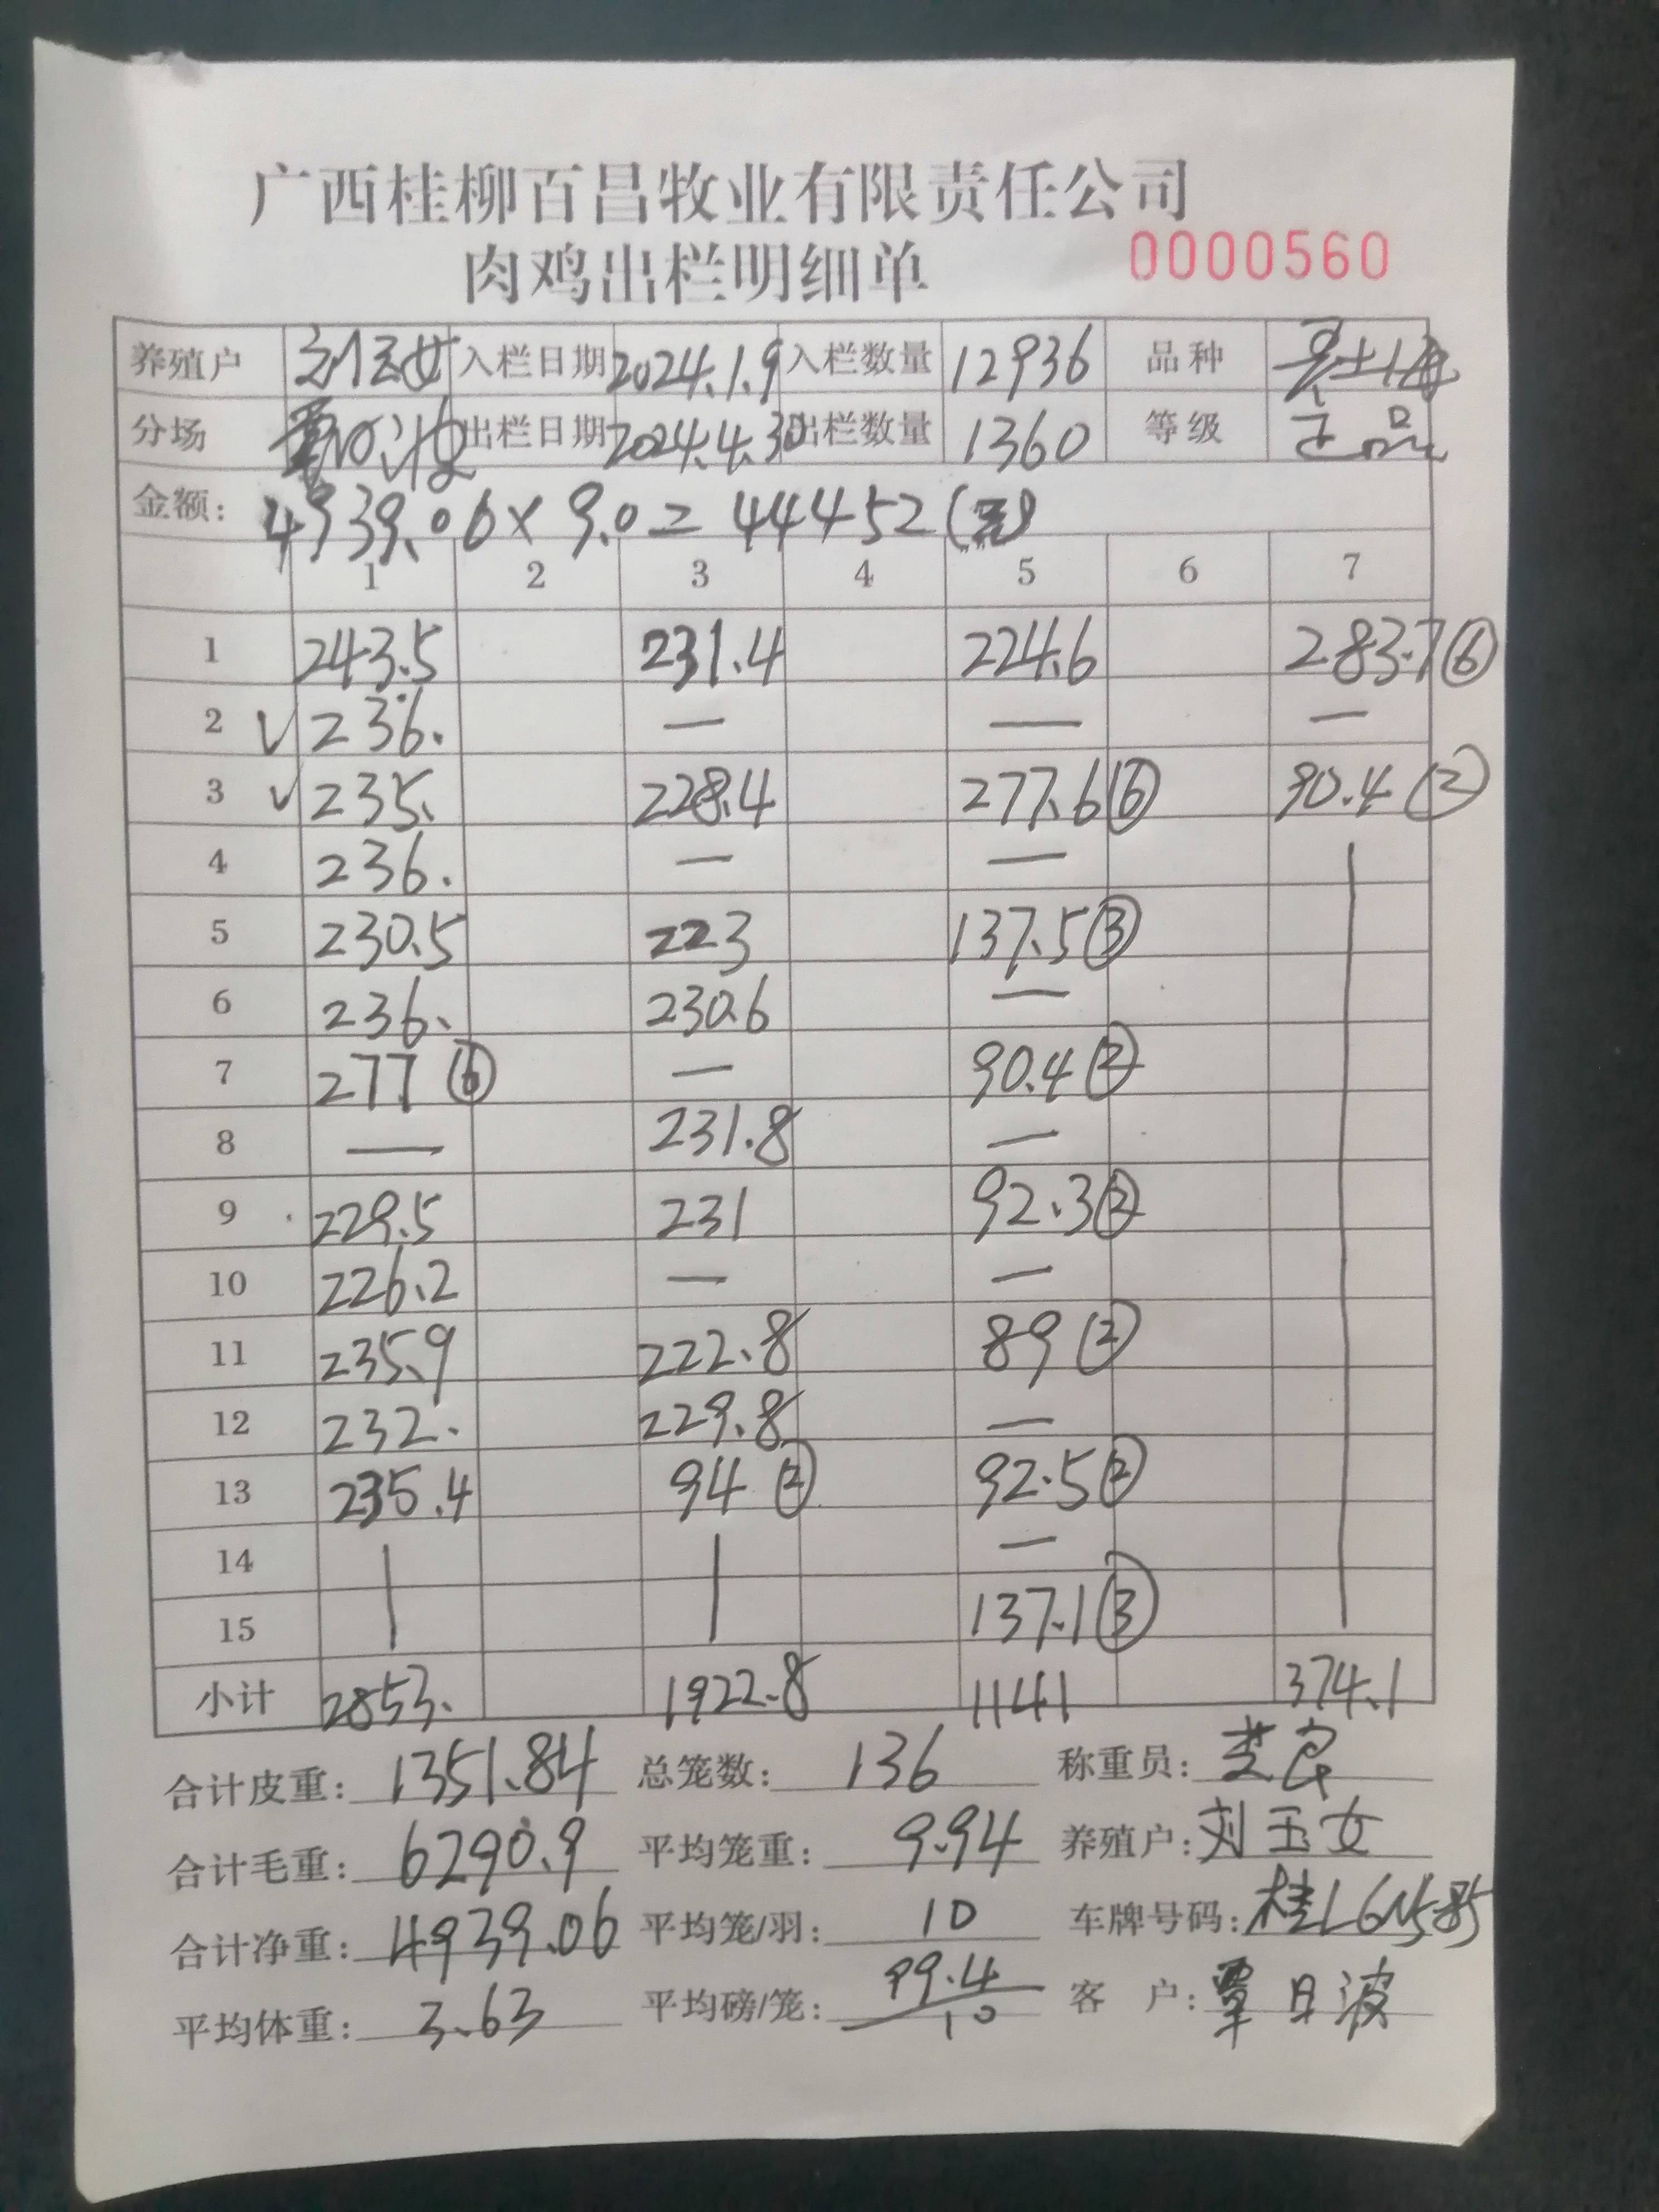 广西桂柳百昌牧业有限责任公司
肉鸡出栏明细单 0000560
养殖户 刘玉女 入栏日期 2024.1.9 入栏数量 12936 品种
分场 出栏日期 2024.4.30 出栏数量 1360 等级 正品
金额: 4939.06×9.0=44452(元)
1 2 3 4 5 6 7
1 243.5 231.4 224.6 283.7⑥
2 √236. — — —
3 √235. 228.4 277.6⑥ 90.4②
4 236. — —
5 230.5 223 137.5③
6 236. 230.6 —
7 277⑥ — 90.4②
8 — 231.8 —
9 229.5 231 92.3②
10 226.2 — —
11 235.9 222.8 89②
12 232. 229.8 —
13 235.4 94② 92.5②
14 —
15 137.1③
小计 2853. 1922.8 1141 374.1
合计皮重: 1351.84 总笼数: 136 称重员:
合计毛重: 6290.9 平均笼重: 9.94 养殖户: 刘玉女
合计净重: 4939.06 平均笼/羽: 10 车牌号码: 桂L
平均体重: 3.63 平均磅/笼: 99.4/10 客 户: 覃日波